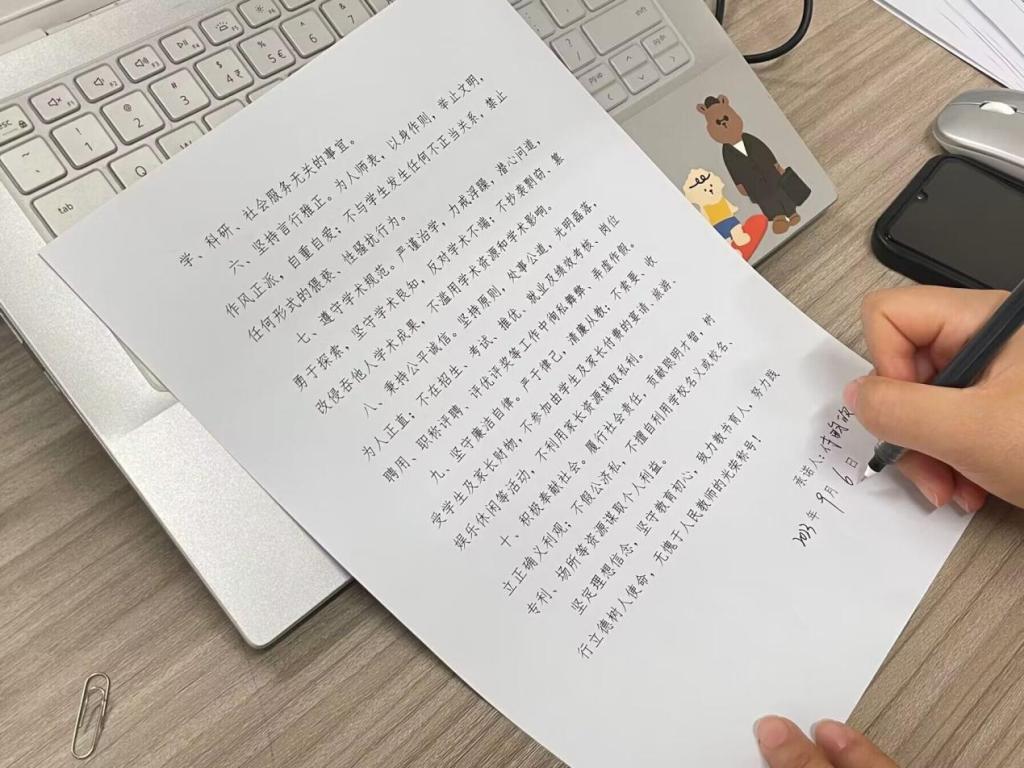 学、科研、社会服务无关的事宜。
六、坚持言行雅正。为人师表，以身作则，举止文明，
作风正派，自重自爱；不与学生发生任何不正当关系，禁止
任何形式的猥亵、性骚扰行为。
七、遵守学术规范。严谨治学，力戒浮躁，潜心问道，
勇于探索，坚守学术良知，反对学术不端；不抄袭剽窃、篡
改侵吞他人学术成果，不滥用学术资源和学术影响。
八、秉持公平诚信。坚持原则，处事公道，光明磊落，
为人正直；不在招生、考试、推优、就业及绩效考核、岗位
聘用、职称评聘、评优评奖等工作中徇私舞弊、弄虚作假。
九、坚守廉洁自律。严于律己，清廉从教；不索要、收
受学生及家长财物，不参加由学生及家长付费的宴请、旅游、
娱乐休闲等活动，不利用家长资源谋取私利。
十、积极奉献社会。履行社会责任，贡献聪明才智，树
立正确义利观；不假公济私，不擅自利用学校名义或校名、
专利、场所等资源谋取个人利益。
坚定理想信念，坚守教育初心，致力教书育人，努力践
行立德树人使命，无愧于人民教师的光荣称号！
承诺人：
2023年 9月 6日
~ 1 2 3 4 5 6 7
₹ € % &
esc
tab
Q
PgUp
PgDn